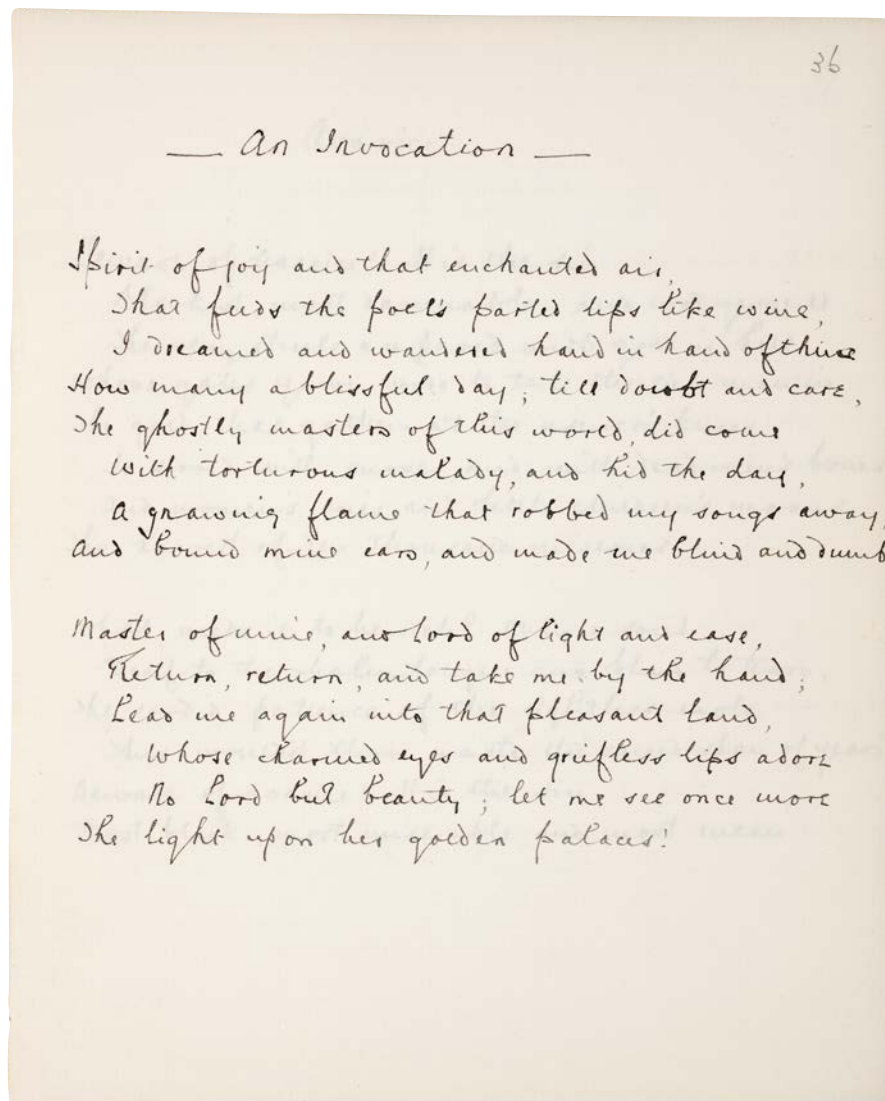 36
— An Invocation —
Spirit of joy and that enchanted air,
That feeds the poet's parted lips like wine,
I dreamed and wandered hand in hand of thine
How many a blissful day; till doubt and care,
The ghostly masters of this world, did come
With torturous malady, and hid the day,
A gnawing flame that robbed my songs away,
And bound mine ears, and made me blind and dumb
Master of mine, and Lord of light and ease,
Return, return, and take me by the hand;
Lead me again into that pleasant land,
Whose charmed eyes and griefless lips adore
No Lord but beauty; let me see once more
The light upon her golden palaces!